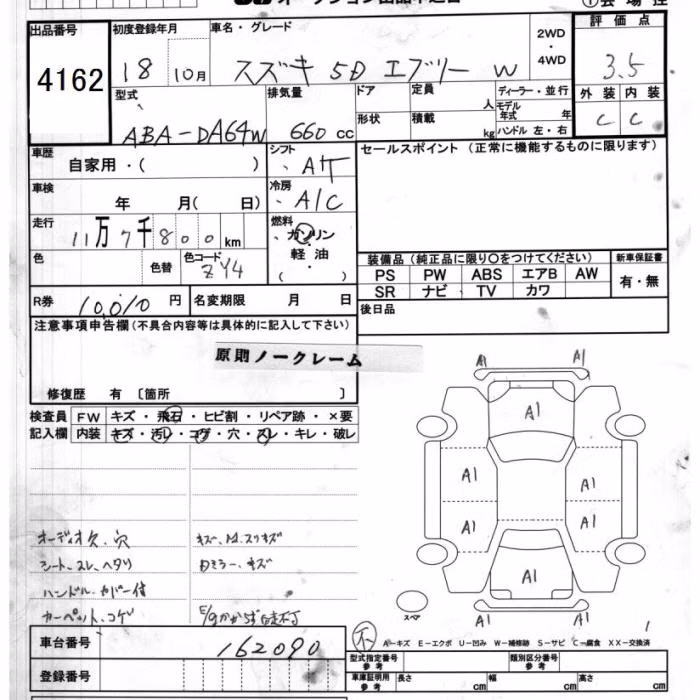 オークション出品申込書
①会場控
出品番号
4162
初度登録年月
18 10月
車名・グレード
スズキ 5D エブリー W
2WD
・
4WD
評価点
3.5
型式
ABA-DA64W
排気量
660 cc
ドア
形状
定員 人
積載 kg
ディーラー・並行
モデル年式 年
ハンドル 左・右
外装 内装
C C
車歴
自家用・( )
シフト
A/T
セールスポイント (正常に機能するものに限ります)
車検
年 月( 日)
冷房
A/C
走行
11万7千800km
燃料
ガソリン
軽油
( )
色
色替
色コード
ZY4
装備品 (純正品に限り○をつけてください)
新車保証書
PS PW ABS エアB AW
有・無
SR ナビ TV カワ
R券 10,010 円
名変期限 月 日
後日品
注意事項申告欄 (不具合内容等は具体的に記入して下さい)
原則ノークレーム
修復歴 有 〔箇所 〕
検査員
記入欄
FW キズ・飛石・ヒビ割・リペア跡・×要
内装 キズ・汚レ・コゲ・穴・スレ・キレ・破レ
A1 A1
A1
A1 A1
A1 A1
A1
A1 A1
オーディオ欠、穴
キズ、M、スリキズ
シート、スレ、ヘタリ
Dミラー、キズ
ハンドル、カバー付
カーペット、コゲ
E/gかからず自走不可
スペア
不
A-キズ E-エクボ U-凹み W-補修跡 S-サビ C-腐食 XX-交換済
車台番号 162090
型式指定番号
参考
類別区分番号
参考
登録番号
車庫証明用
参考
長さ cm 幅 cm 高さ cm